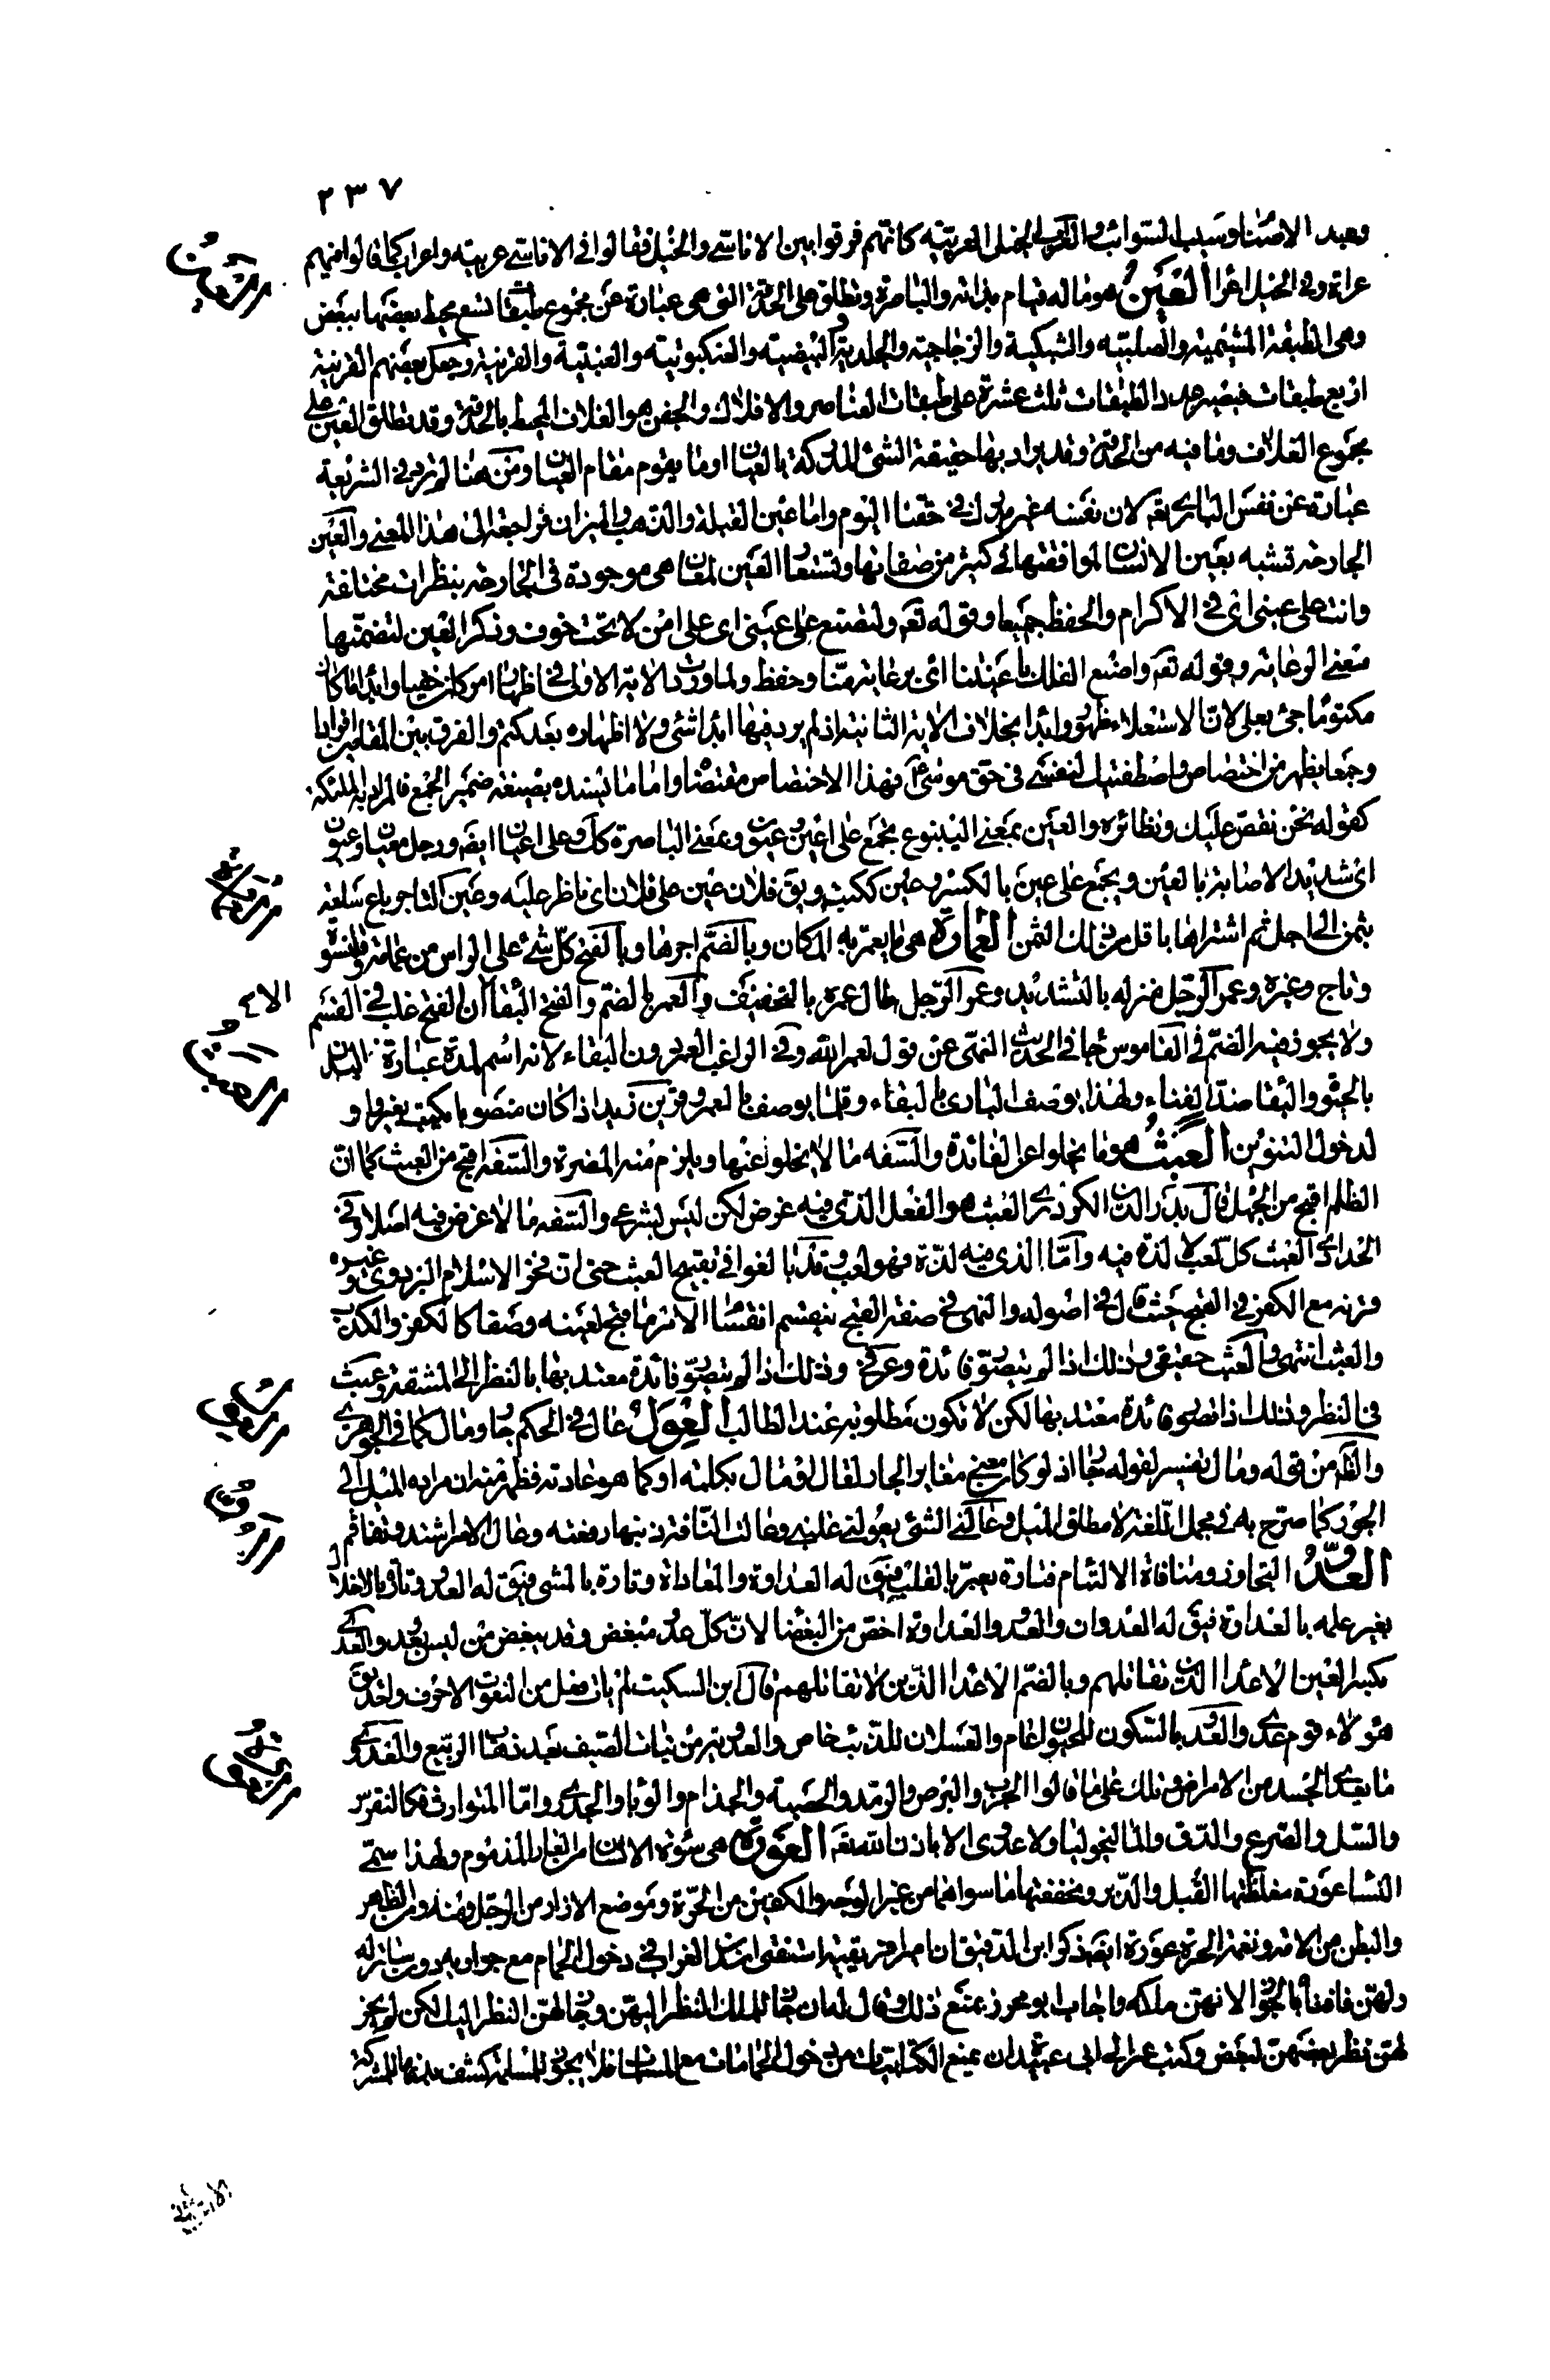 ٢٣٧
وعبد الاصنام وسيب السوائب والعراب الخيل العربية كانهم فرقوا بين الاناسي والخيل فقالوا في الاناسي عربية واعراب كما قالوا فيهم
عراة وفي الخيل اعرا العين هو ما له قيام بذاته والباصرة وتطلق على الحدقة التي هي عبارة عن مجموع طبقات تسع يحيط بعضها ببعض
وهي الطبقة المشيمية والصلبية والشبكية والزجاجية والجلدية والبيضية والعنكبوتية والعنبية والقرنية وجعل بعضهم القرنية
اربع طبقات فيصير عدد الطبقات ثلث عشرة على طبقات العناصر والافلاك والجفن هو الغلاف المحيط بالحدقة وقد تطلق العين على
مجموع الغلاف وما فيه من الحدقة وقد يراد بها حقيقة الشئ المدركة بالعيان او ما يقوم مقام العيان ومن هنا لم يرد في الشريعة
عبارة عن نفس الباري تعه لان نفسه غير مدرك في حقنا اليوم واما عين القبلة والذهب والميزان فراجعة الى هذا المعنى والعين
الجارحة تشبه بعين الانسان لموافقتها في كثير من صفاتها وتستعار العين لمعان هي موجودة في الجارحة بنظرات مختلفة
وانت على عيني اي في الاكرام والحفظ جميعا وقوله تعه ولتصنع على عيني اي على امن لا تحت خوف وذكر العين لتضمنها
معنى الرعاية وقوله تعه واصنع الفلك باعيننا اي برعاية منا وحفظ ولما وردت الاية الاولى في اظهار امر كان خفيا وابداء ما كان
مكتوما جئ بعلى لان الاستعلاء ظهور وابداء بخلاف الاية الثانية اذ لم يرد فيها ابداء شئ ولا اظهاره بعد كتم والفرق بين المقامين افرادا
وجمعا يظهر من اختصاص واصطنعتك لنفسي في حق موسى ع فهذا الاختصاص مقتض هنا واما ما يسنده بصيغة ضمير الجمع فالمراد به الملئكة
كقوله نحن نقص عليك ونظائره والعين بمعنى الينبوع يجمع على اعين وعيون وبمعنى الباصرة كك وعلى اعيان ايضه ورجل معيان وعيون
اي شديد الاصابة بالعين ويجمع على عين بالكسر وعين ككتب ويق فلان عين على فلان اي ناظر عليه وعين التاجر باع سلعته
بثمن الى اجل ثم اشتراها باقل من ذلك الثمن العمارة هي ما يعمر به المكان وبالضم اجرها وبالفتح كل شئ على الراس من عمامة وقلنسوة
وتاج وغيره وعمر الرجل منزله بالتشديد وعمر الرجل طال عمره بالتخفيف والعمر بالضم والفتح البقاء الا ان الفتح غلب في القسم
ولا يجوز فيه الضم في القاموس جاء في الحديث النهي عن قول لعمر الله وفي الراغب العمر دون البقاء لانه اسم لمدة عمارة البدن
بالحيوة والبقاء ضد الفناء ولهذا يوصف الباري بالبقاء وقلما يوصف بالعمر وفرق بين زيد اذا كان منصوبا يكتب بغير واو
لدخول التنوين العبث هو ما يخلو عن الفائدة والسفه ما لا يخلو عنها ويلزم منه المضرة والسفه اقبح من العبث كما ان
الظلم اقبح من الجهل قال بدر الدين الكردري العبث هو الفعل الذي فيه غرض لكن ليس بشرعي والسفه ما لا غرض فيه اصلا وفي
الحدادي العبث كل لعب لا لذة فيه واما الذي فيه لذة فهو لعب وقد بالغوا في تقبيح العبث حتى ان فخر الاسلام البزدوي وغيره
قرنه مع الكفر في القبح حيث قال في اصوله والنهي في صفة القبح ينقسم انقسام الامر ما قبح لعينه وضعا كالكفر والكذب
والعبث انتهى والعبث حقيقي وذلك اذا لم يتصور فائدة وعرفي وذلك اذا لم يتصور فائدة معتد بها بالنظر الى المشقة وعبث
في النظر وذلك اذا تصور فائدة معتد بها لكن لا تكون مطلوبة عند الطالب العول عال في الحكم جار ومال كما في الجوهري
والظه من قوله ومال تفسير لقوله جار اذ لو كان معنى مغايرا لجار لقال او مال بكلمة او كما هو عادته فظهر منه ان مراده الميل الى
الجور كما صرح به في مجمل اللغة لا مطلق الميل وعالني الشئ يعولني غلبني وعالت الناقة ذنبها رفعته وعال الامر اشتد وتفاقم
العدو التجاوز ومنافاة الالتئام فتارة يعبر بالقلب فيق له العداوة والمعاداة وتارة بالمشي فيق له العدو وتارة بالاخلال
بغير علمه بالعداوة فيق له العدوان والعدو والعداوة اخص من البغضاء لان كل عدو مبغض وقد يبغض من ليس بعدو والعدى
بكسر العين الاعداء الذين تقاتلهم وبالضم الاعداء الذين لا تقاتلهم قال ابن السكيت لم يات فعل من النعوت الا حرف واحد يق
هؤلاء قوم عدى والعدو بالسكون للحيوان عام والعسلان للذئب خاص والعدوية من نبات الصيف بعد ذهاب الربيع والعدوى
ما يعدي الجسد من الامراض وذلك على ما قالوا الجرب والبرص والرمد والحصبة والجذام والوباء والجدري واما المتوارث فكالنقرس
والسل والصرع والدق والماليخوليا ولا عدوى الا باذن الله تعه العورة هي سوءة الانسان من العار المذموم ولهذا سمي
النساء عورة مغلظتها القبل والدبر ومخففتها ما سواهما من غير الوجه والكفين من الحرة وموضع الازار من الرجل ومنه ومن الظهر
والبطن من الامة ونغمة الحرة عورة ايضه ذكر ابن الدقيق ان امير افريقية استفتى اسد الفرات في دخول الحمام مع جواريه دون ساتر له
ولهن فافتاه بالجواز لانهن ملكه واجاب ابو محرز بمنع ذلك وقال له ان جاز للملك النظر اليهن وجاز لهن النظر اليك لكن لم يجز
لهن نظر بعضهن لبعض وكتب عمر الى ابي عبيدة ان يمنع الكتابيات من دخول الحمامات مع المسلمات فلا يجوز للمسلمة كشف بدنها للمشركة